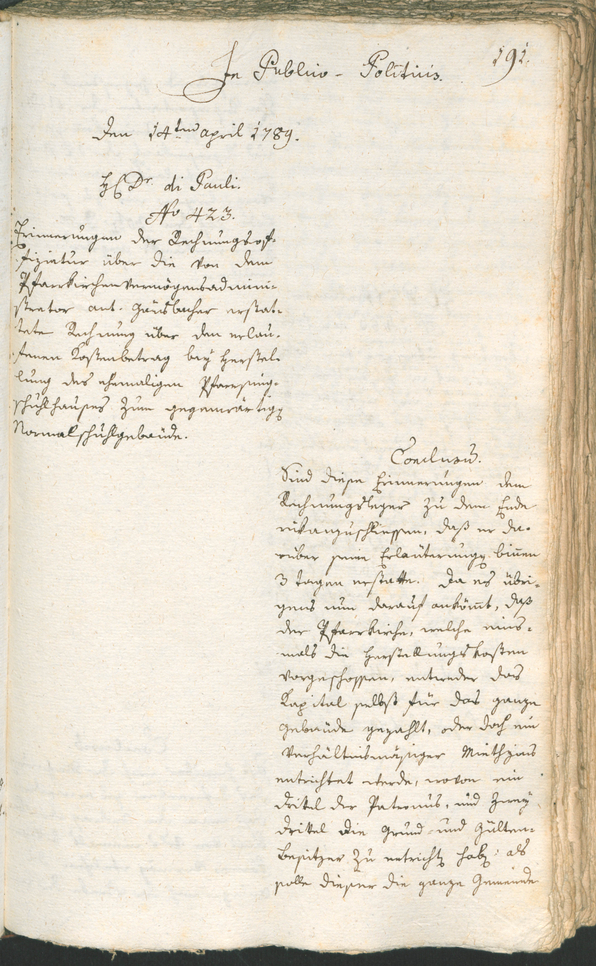 191.
In Publico-Politicis.
Den 14ten April 1789.
H. Dr. di Pauli.
No 423.
Erinnerungen der Rechnungsof-
fiziatur über die von dem
Pfarrkirchenvermögensadmini-
strator Ant. Gaisbacher erstat-
tete Rechnung über den erlau-
fenen Kostenbetrag bey Herstel-
lung des ehemaligen Pfarrsing-
schuhlhauses zum gegenwärtigen
Normalschuhlgebäude.
Conclusum.
Sind diese Erinnerungen dem
Rechnungsleger zu dem Ende
hinauszuschliessen, daß er da-
rüber seine Erläuterungen binnen
3 tagen erstatte. Da es übri-
gens nun darauf ankömt, daß
der Pfarrkirche, welche eins-
mals die Herstellungskosten
vorgeschossen, entweder das
Kapital selbst für das ganze
gebäude gezahlt, oder doch ein
Verhältnismäsiger Miethzins
entrichtet werde, wovon ein
drittel der Patronus, und zwey
drittel die Grund- und Gülten-
besitzer zu entrichten haben: als
solle dieser die ganze Gemeinde